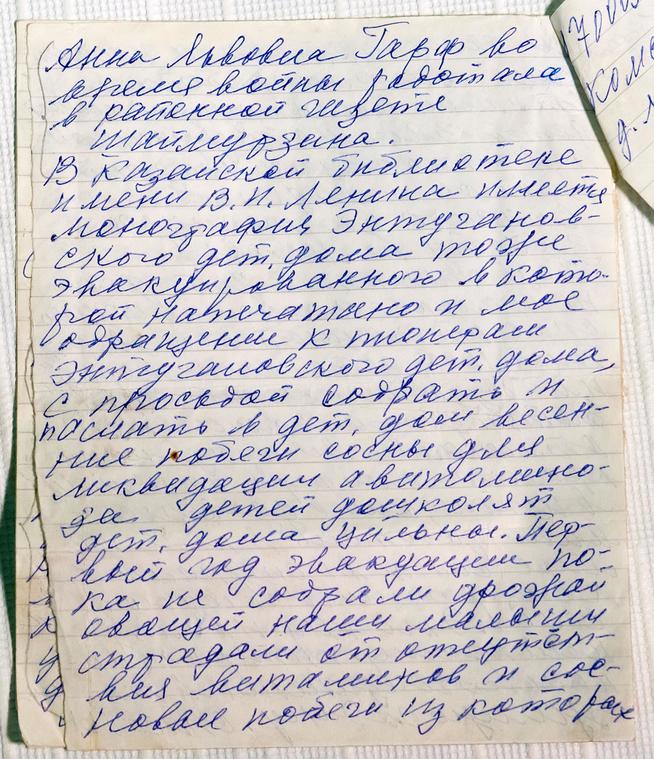 Анна Львовна Гарф во
время войны работала
в районной газете
Шаймурзина.
В Казанской библиотеке
имени В.И. Ленина имеется
монография Энтуганов-
ского дет. дома тоже
эвакуированного в кото-
рой напечатано и мое
обращение к пионерам
Энтугановского дет. дома,
с просьбой собрать и
паслать в дет. дом весен-
ние побеги сосны для
ликвидации авитамино-
за детей дошколят
дет. дома Цильны. Пер-
вый год эвакуации по-
ка не собрали урожай
овощей наши малыши
страдали от отсутст-
вия витаминов и сос-
новые побеги из которых
7000
ком
д.